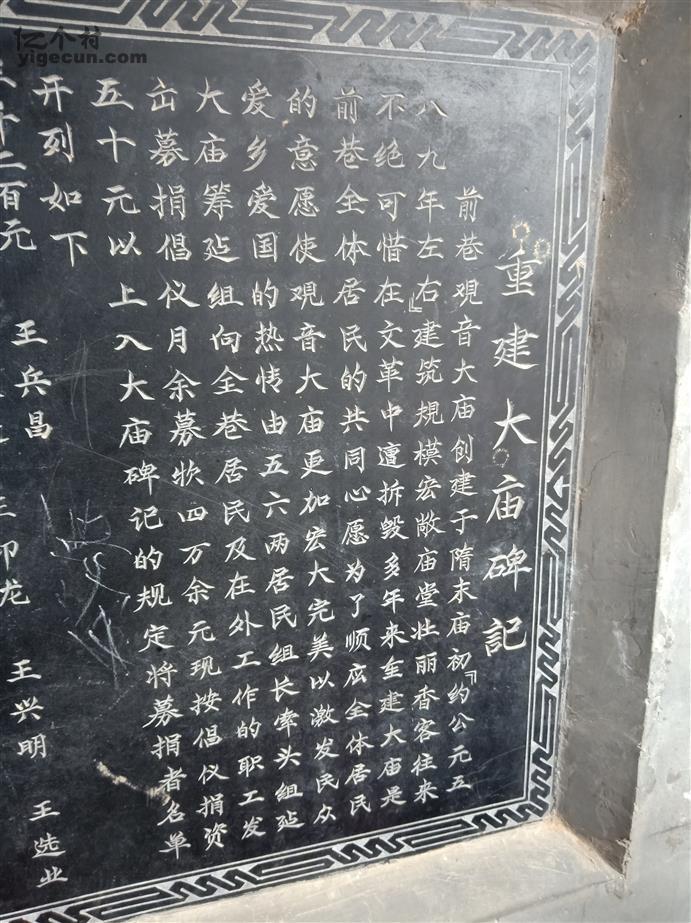 亿个村
yigecun.com
重建大庙碑記
前巷覌音大庙创建于隋末庙初『约公元五
八九年左右』建筑規模宏敞庙堂壮丽香客往来
不绝可惜在文革中遭拆毁多年来重建大庙是
前巷全体居民的共同心愿为了顺应全体居民
的意愿使覌音大庙更加宏大完美以激发民众
爱乡爱国的热情由五六两居民组长牵头组建
大庙筹建组向全巷居民及在外工作的职工发
出募捐倡仪月余募款四万余元现按倡仪捐资
五十元以上入大庙碑记的规定将募捐者名单
开列如下
二百元 王兵昌 王兴明 王选业
印龙